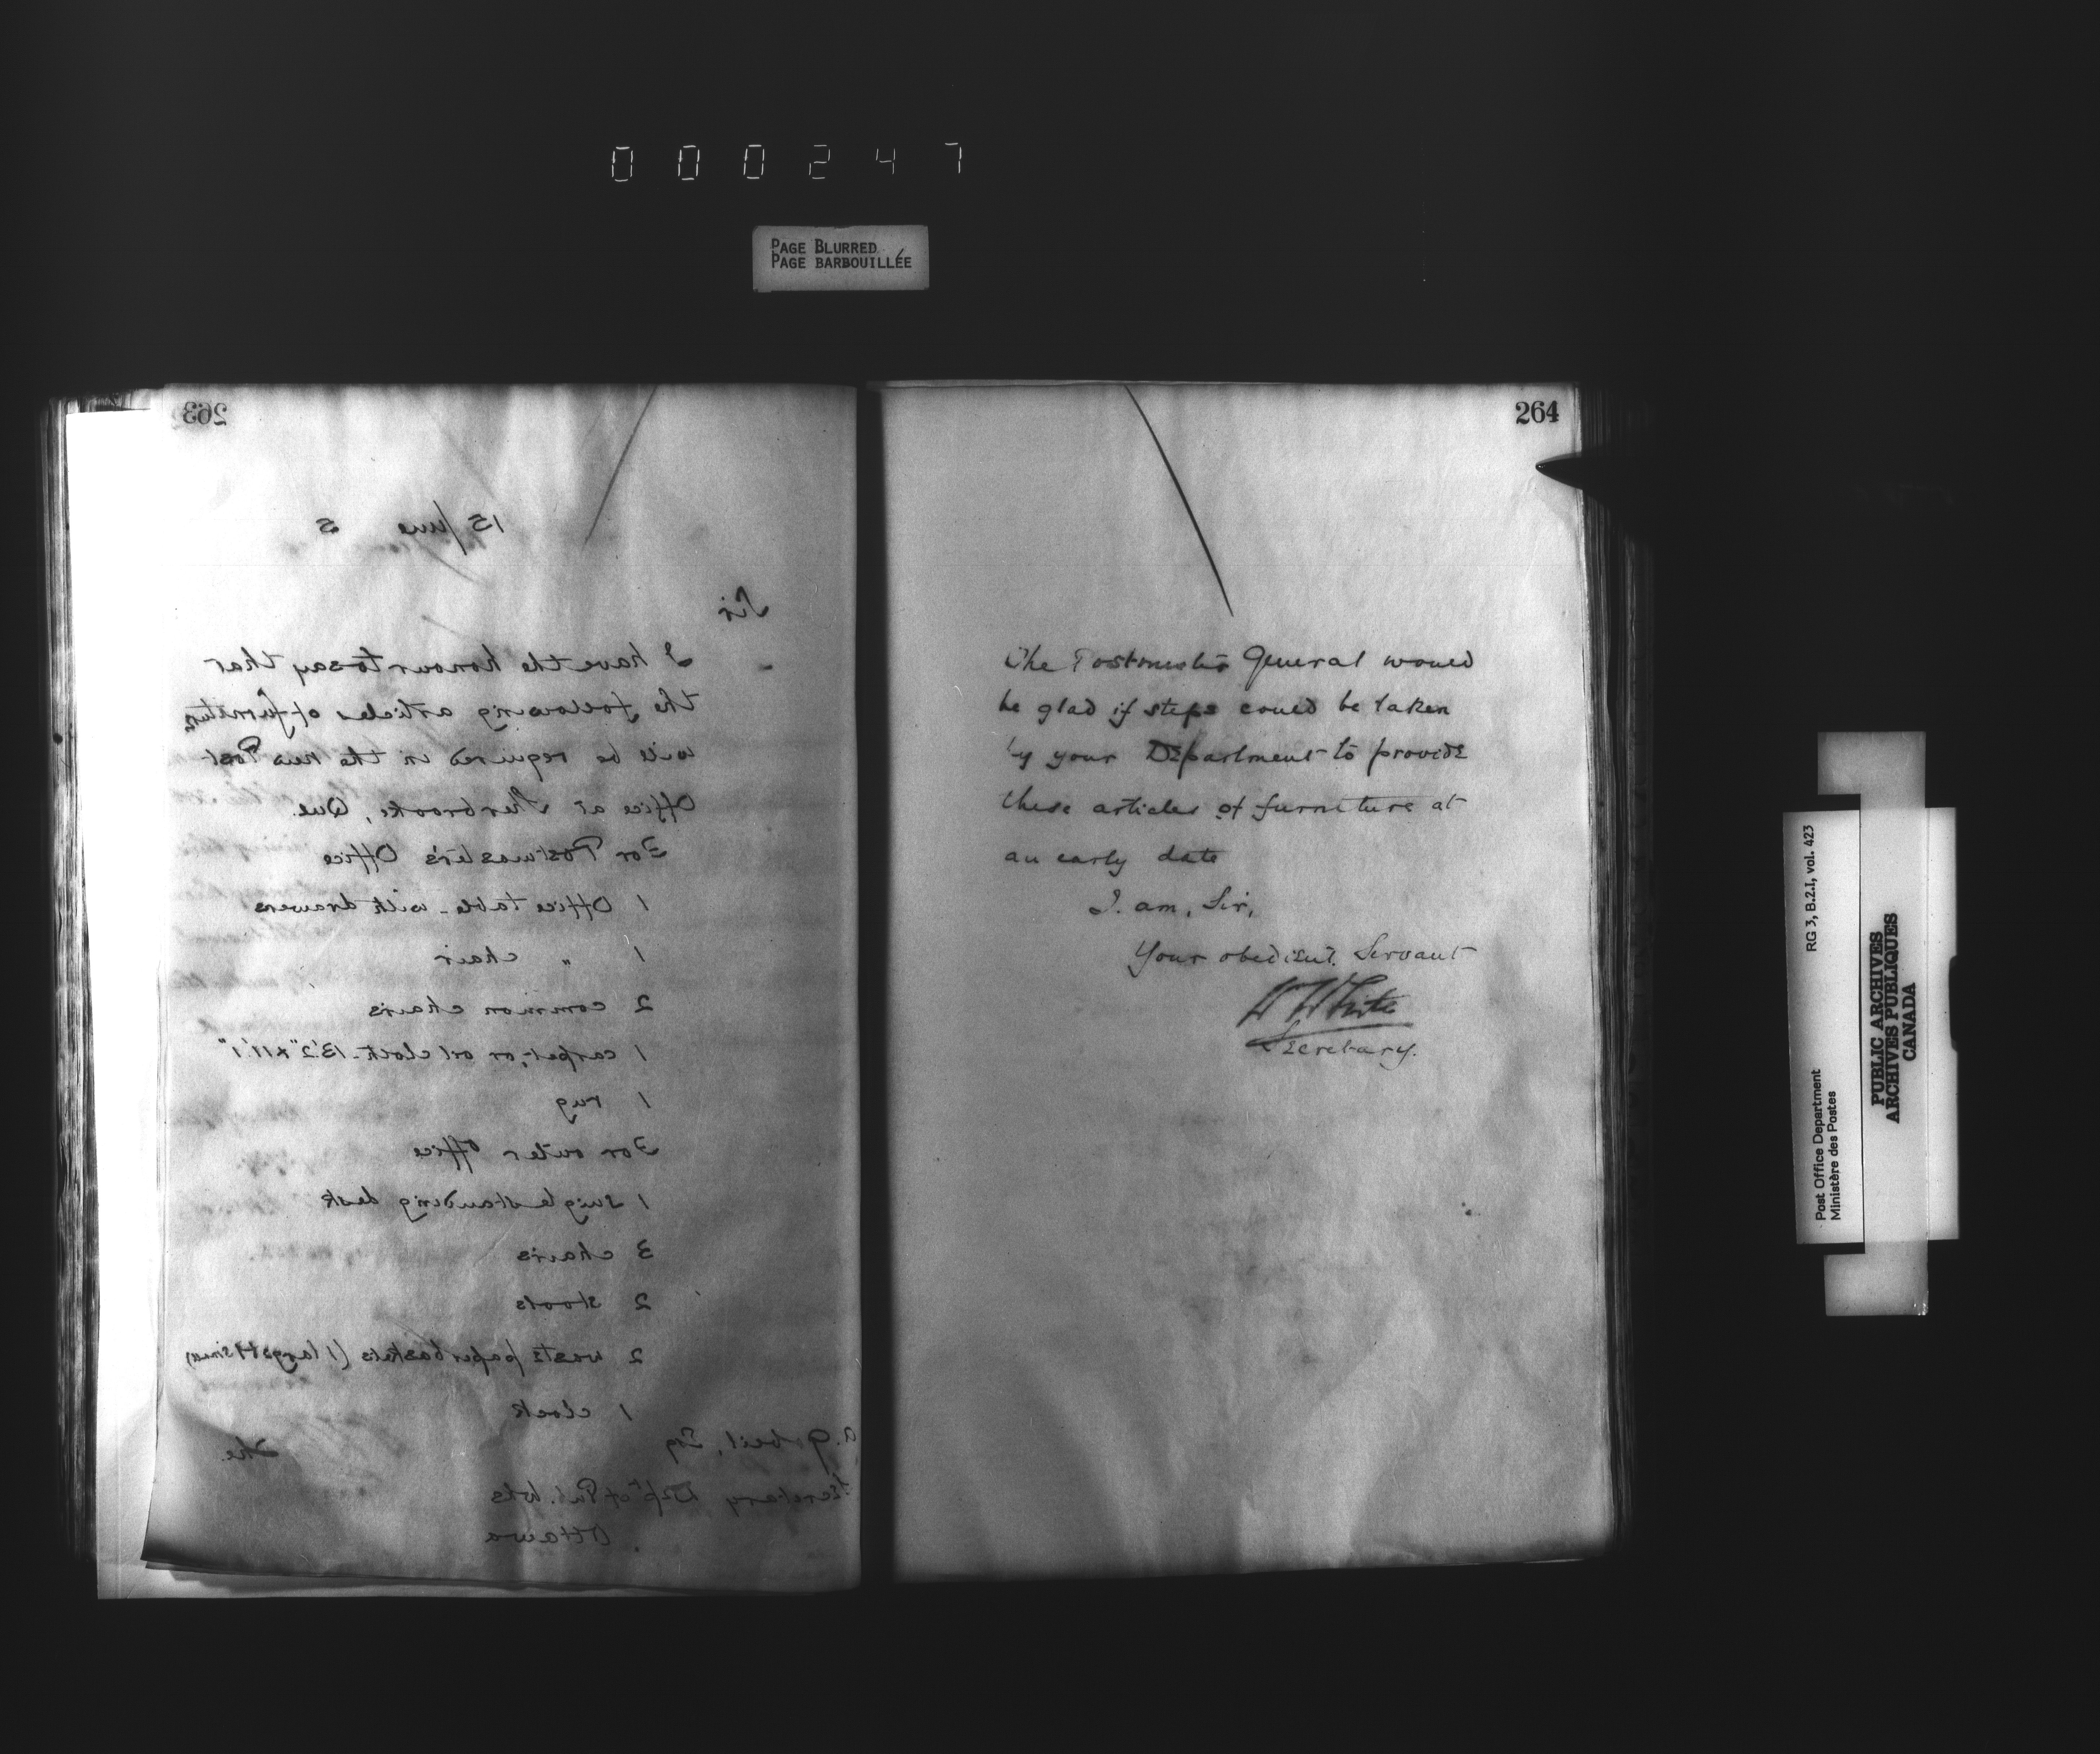 0 0 0 2 4 7
PAGE BLURRED
PAGE BARBOUILLÉE
263
15 June 5
Sir
I have the honour to say that
the following articles of furniture
will be required in the new Post
Office at Sherbrooke, Que.
For Postmaster's Office
1 Office table - with drawers
1 " chair
2 common chairs
1 carpet, or oil cloth - 13'.2" x 11'.1"
1 rug
For outer office
1 single standing desk
3 chairs
2 stools
2 waste paper baskets (1 large & 1 small)
1 clock
A. Gobeil, Esq
The
Secretary Dept of Pub. Wks
Ottawa
264
The Postmaster General would
be glad if steps could be taken
by your Department to provide
these articles of furniture at
an early date
I. am, Sir,
Your obedient. Servant
W White
Secretary.
RG 3, B.2.I, vol. 423
Post Office Department
Ministère des Postes
PUBLIC ARCHIVES
ARCHIVES PUBLIQUES
CANADA